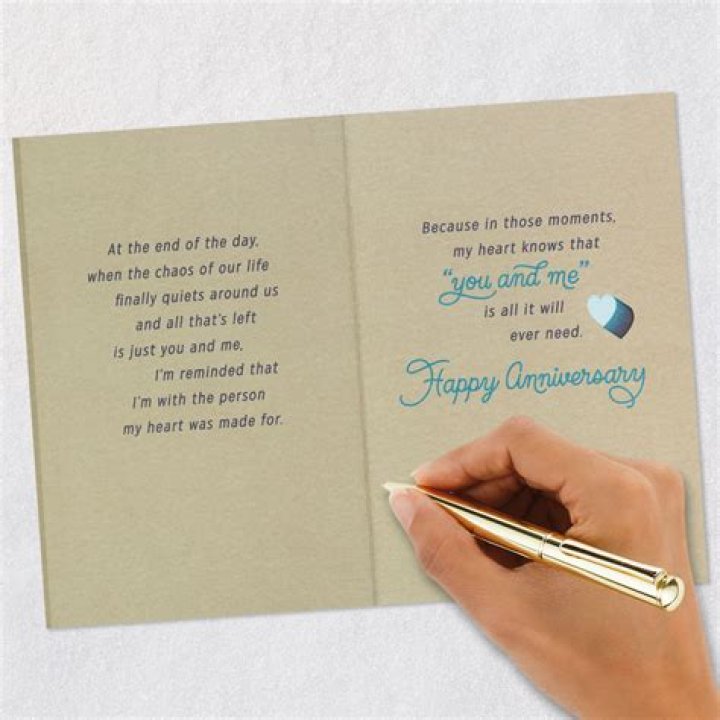 At the end of the day,
when the chaos of our life
finally quiets around us
and all that's left
is just you and me,
I'm reminded that
I'm with the person
my heart was made for.
Because in those moments,
my heart knows that
“you and me”
is all it will
ever need.
Happy Anniversary